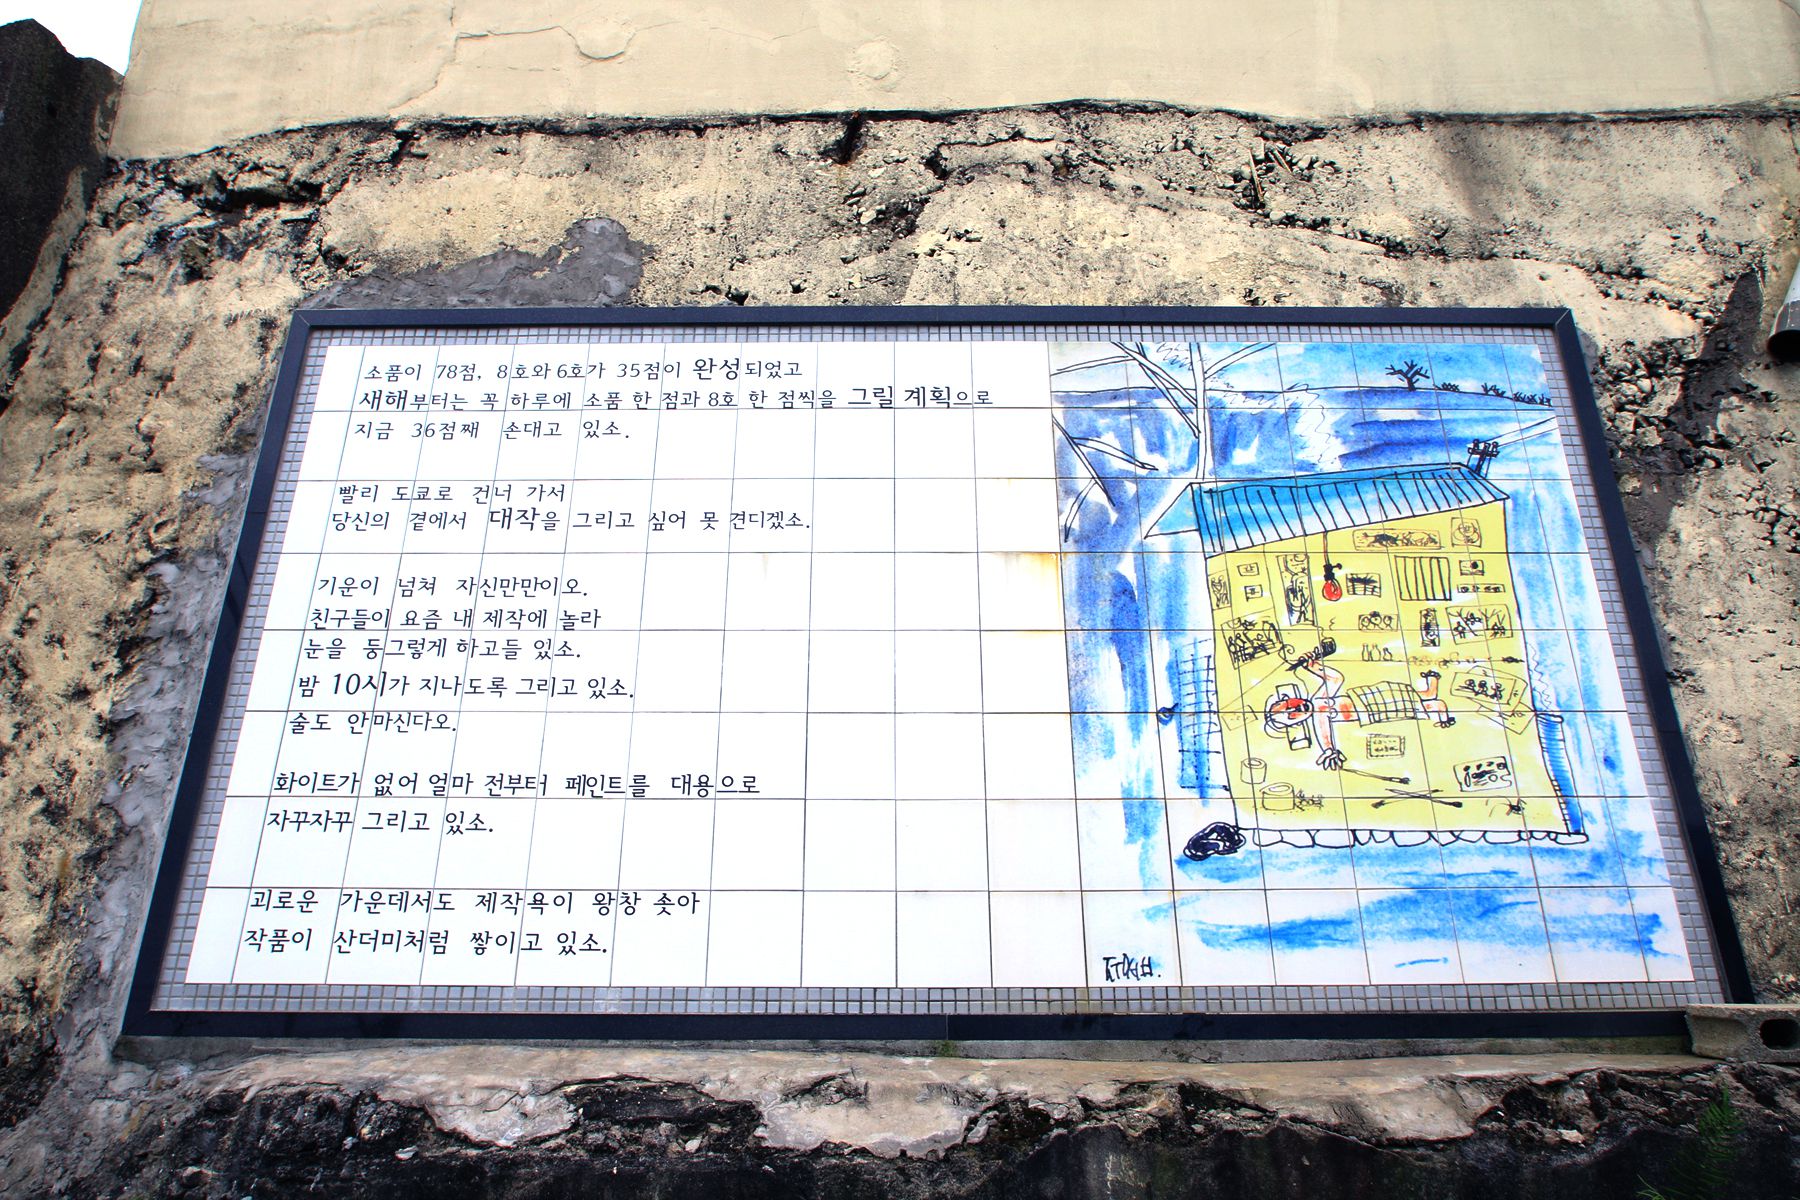 소품이 78점, 8호와 6호가 35점이 완성되었고
새해부터는 꼭 하루에 소품 한 점과 8호 한 점씩을 그릴 계획으로
지금 36점째 손대고 있소.
빨리 도쿄로 건너 가서
당신의 곁에서 대작을 그리고 싶어 못 견디겠소.
기운이 넘쳐 자신만만이오.
친구들이 요즘 내 제작에 놀라
눈을 둥그렇게 하고들 있소.
밤 10시가 지나도록 그리고 있소.
술도 안마신다오.
화이트가 없어 얼마 전부터 페인트를 대용으로
자꾸자꾸 그리고 있소.
괴로운 가운데서도 제작욕이 왕창 솟아
작품이 산더미처럼 쌓이고 있소.
ㅈㅜㅇㅅㅓㅂ